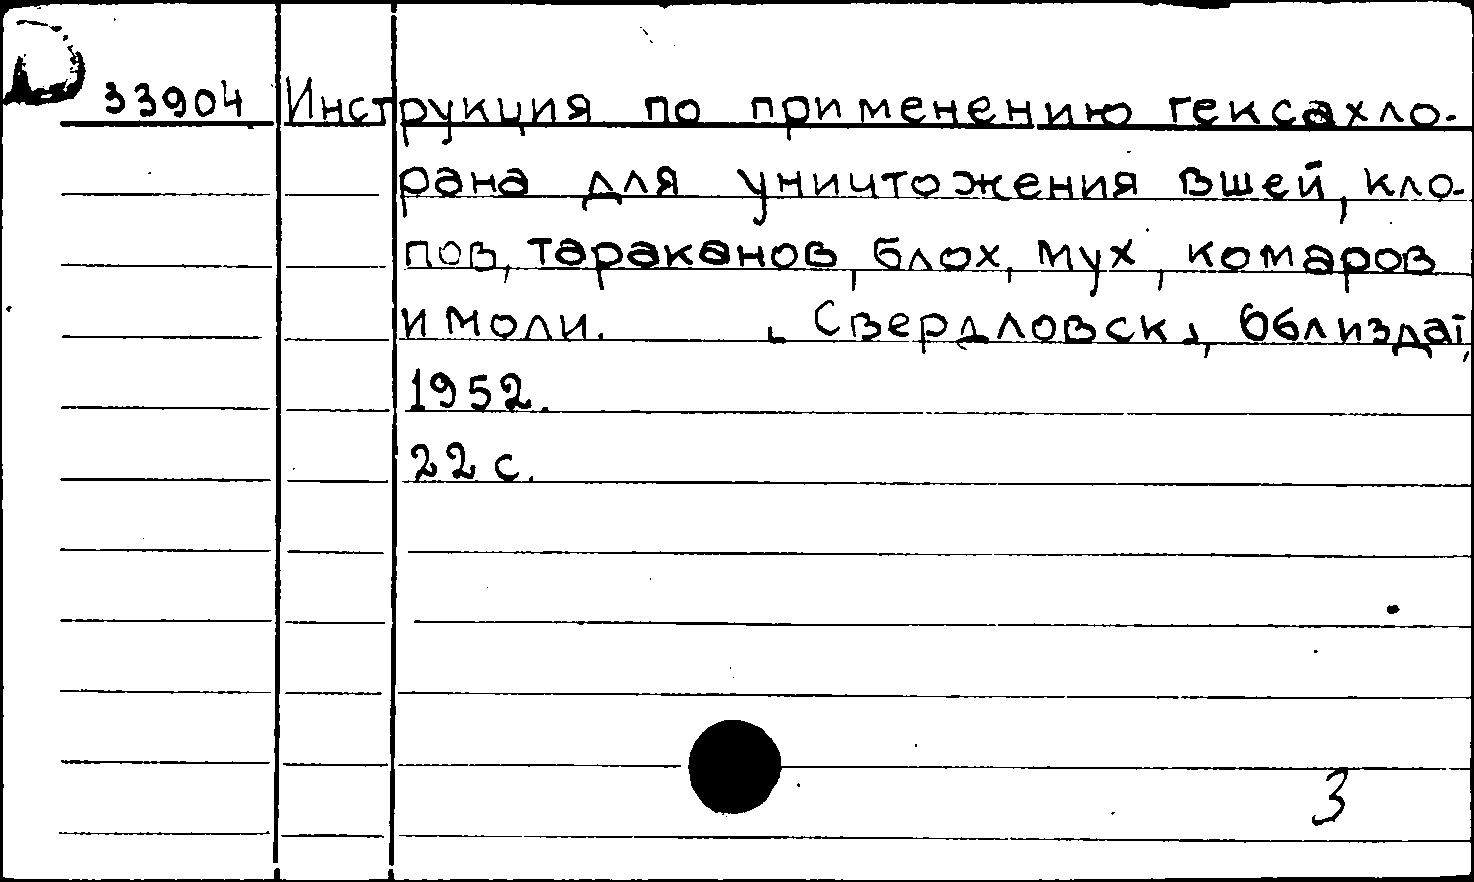 33904 Инструкция по применению гексахло-
рана для уничтожения вшей, кло-
пов, тараканов, блох, мух, комаров
и моли. [Свердловск], Облиздат,
1952.
22 с.
3